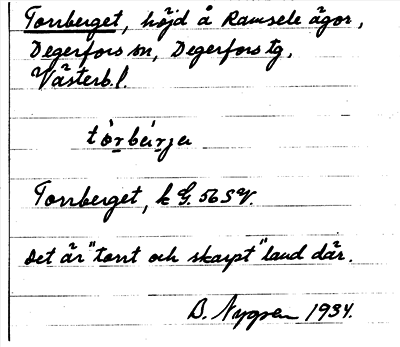 Torrberget, höjd å Ramsele ägor,
Degerfors sn, Degerfors tg,
Västerb. l.
tòrbærja
Torrberget, k G. 56 SV.
Det är "torrt och skarpt" land där.
B. Nygren 1934.